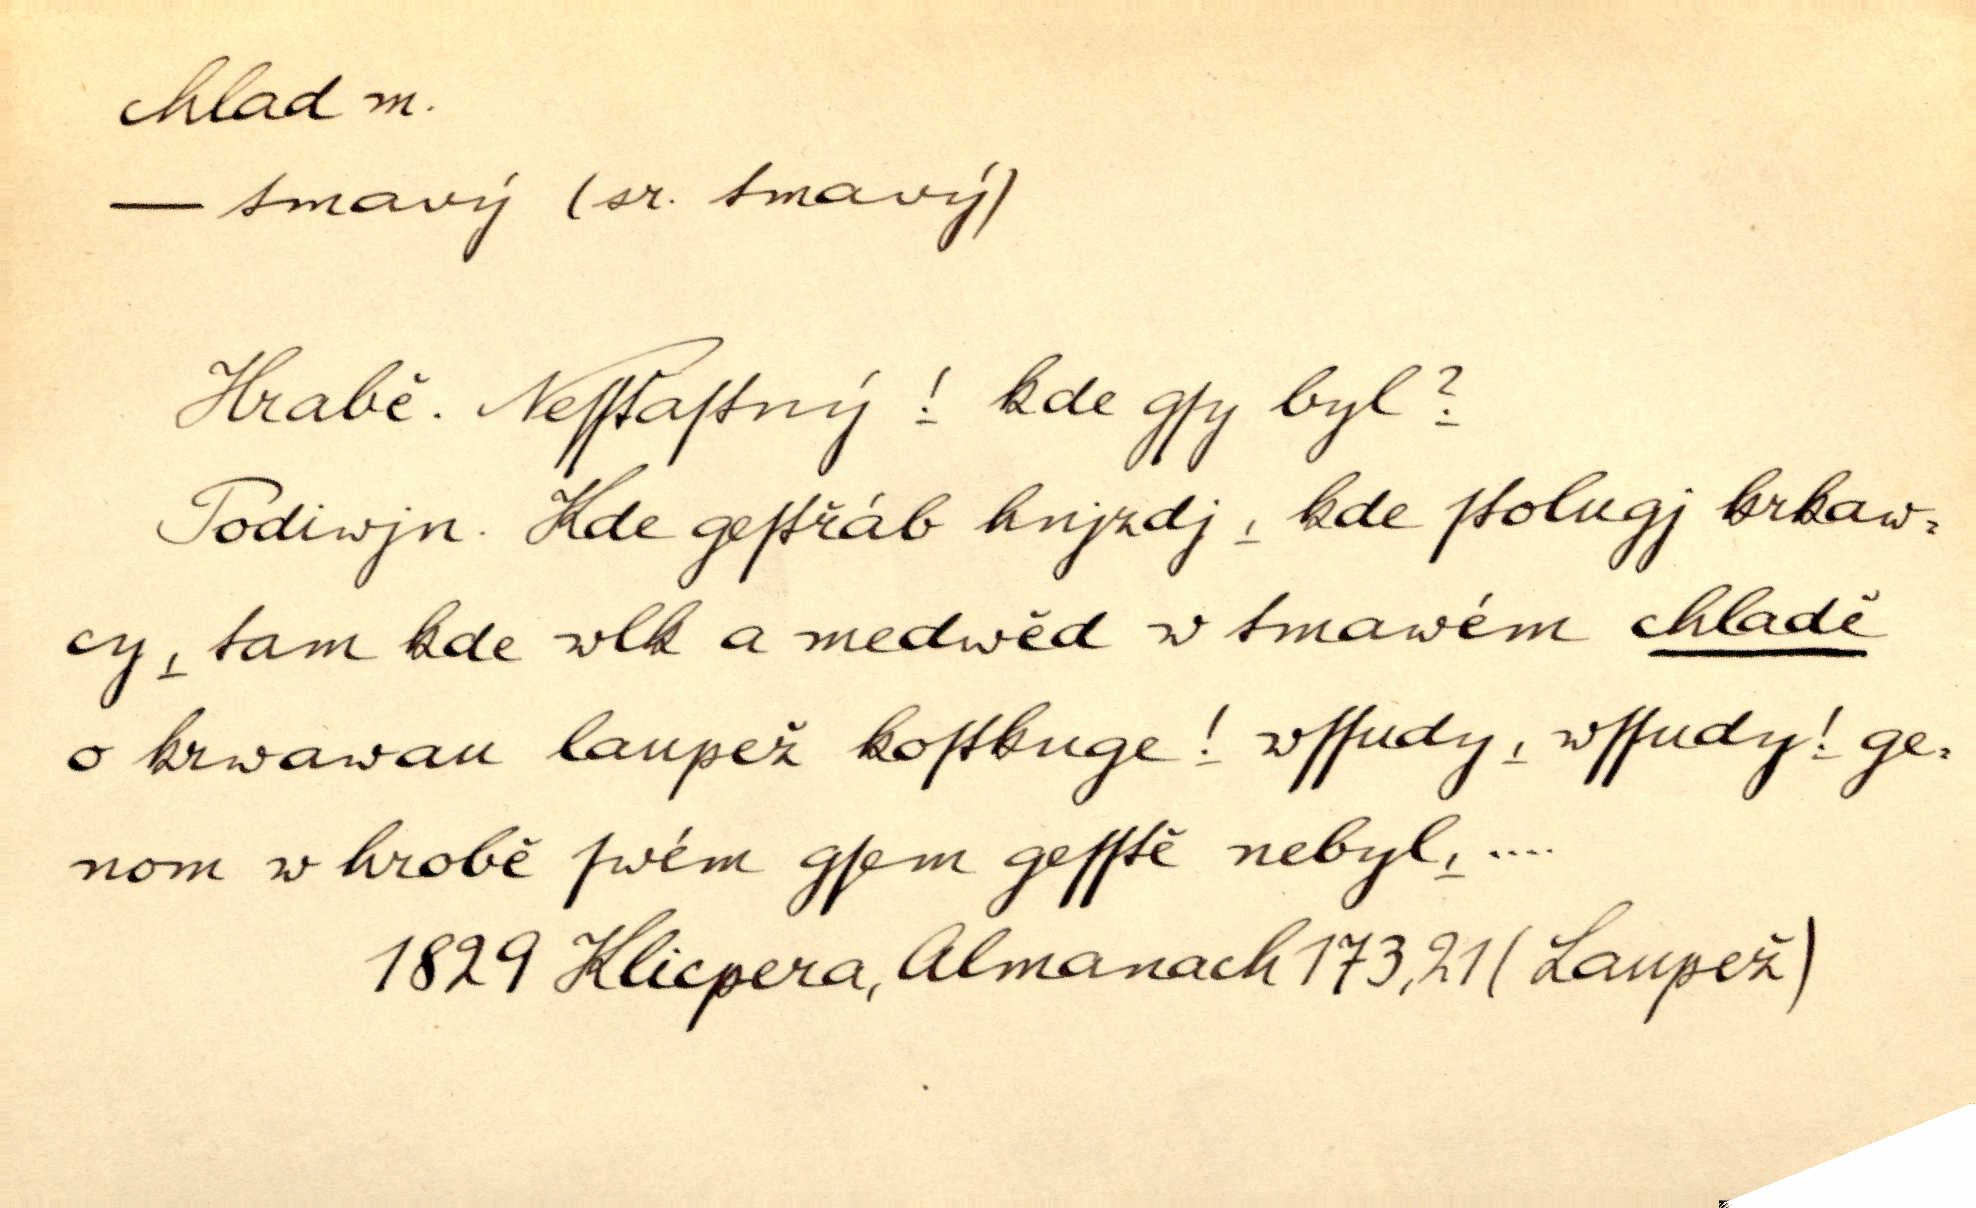 chlad m.
— tmavý (sr. tmavý)
Hrabě. Neſſťaſtný! kde gſy byl?
Podiwjn. Kde geſtřáb hnjzdj, kde ſtolugj krkaw-
cy, tam kde wlk a medwěd w tmawém chladě
o krwawau laupež koſtkuge! wſſudy, wſſudy! ge-
nom w hrobě ſwém gſem geſſtě nebyl, ....
1829 Klicpera, Almanach 173,21 (Laupež)